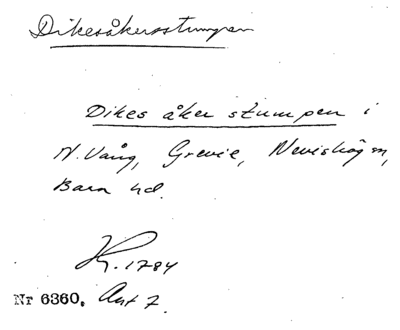 Dikesåkersstumpen
Dikes åker stumpen i
N. Vång, Grevie, Nevishögsn,
Bara hd.
K. 1784
Nr 6360. Akt 7.